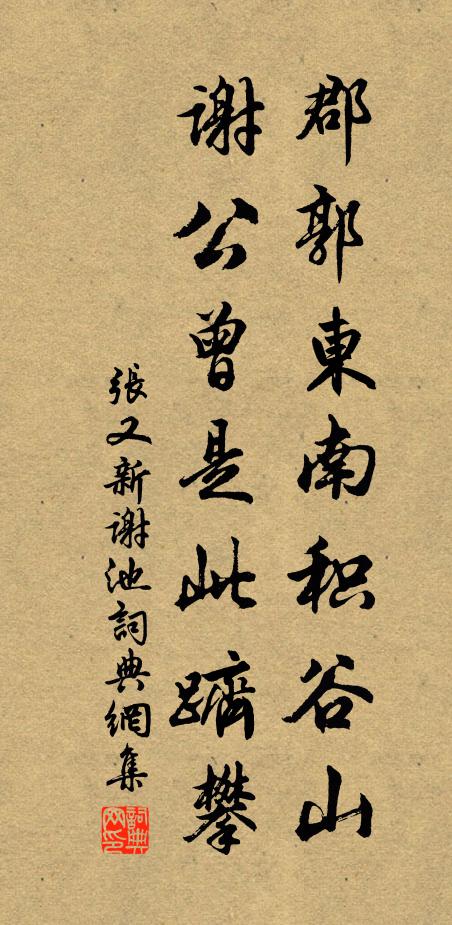 郡郭東南积谷山
謝公曾是此躋攀
張又新謝池詞典網集
詞典网印